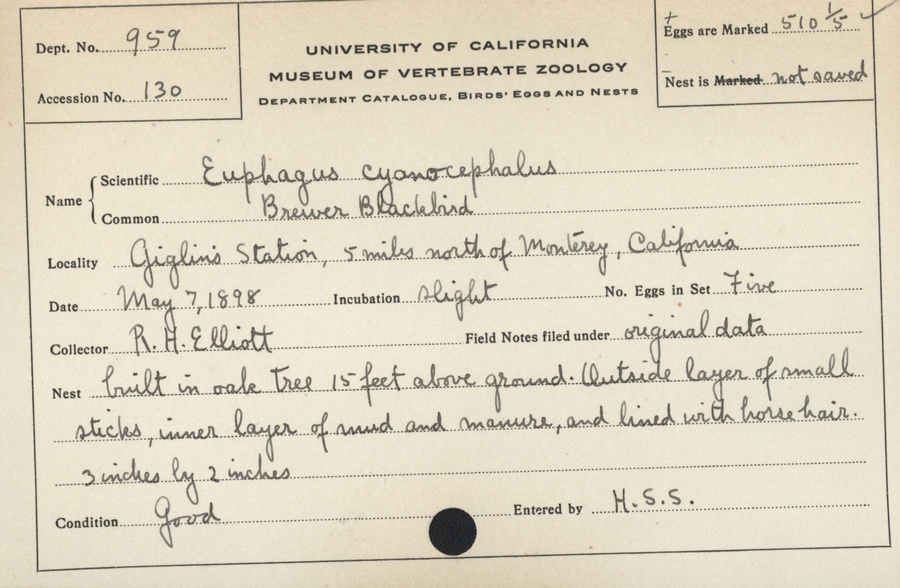 Dept. No. 959
Accession No. 130
UNIVERSITY OF CALIFORNIA
MUSEUM OF VERTEBRATE ZOOLOGY
DEPARTMENT CATALOGUE, BIRDS' EGGS AND NESTS
Eggs are Marked 510 1/5
Nest is Marked not saved
Name
Scientific Euphagus cyanocephalus
Common Brewer Blackbird
Locality Giglin's Station, 5 miles north of Monterey, California
Date May 7, 1898 Incubation slight No. Eggs in Set Five
Collector R. H. Elliott Field Notes filed under original data
Nest built in oak tree 15 feet above ground. Outside layer of small
sticks, inner layer of mud and manure, and lined with horse hair.
3 inches by 2 inches
Condition Good Entered by H.S.S.